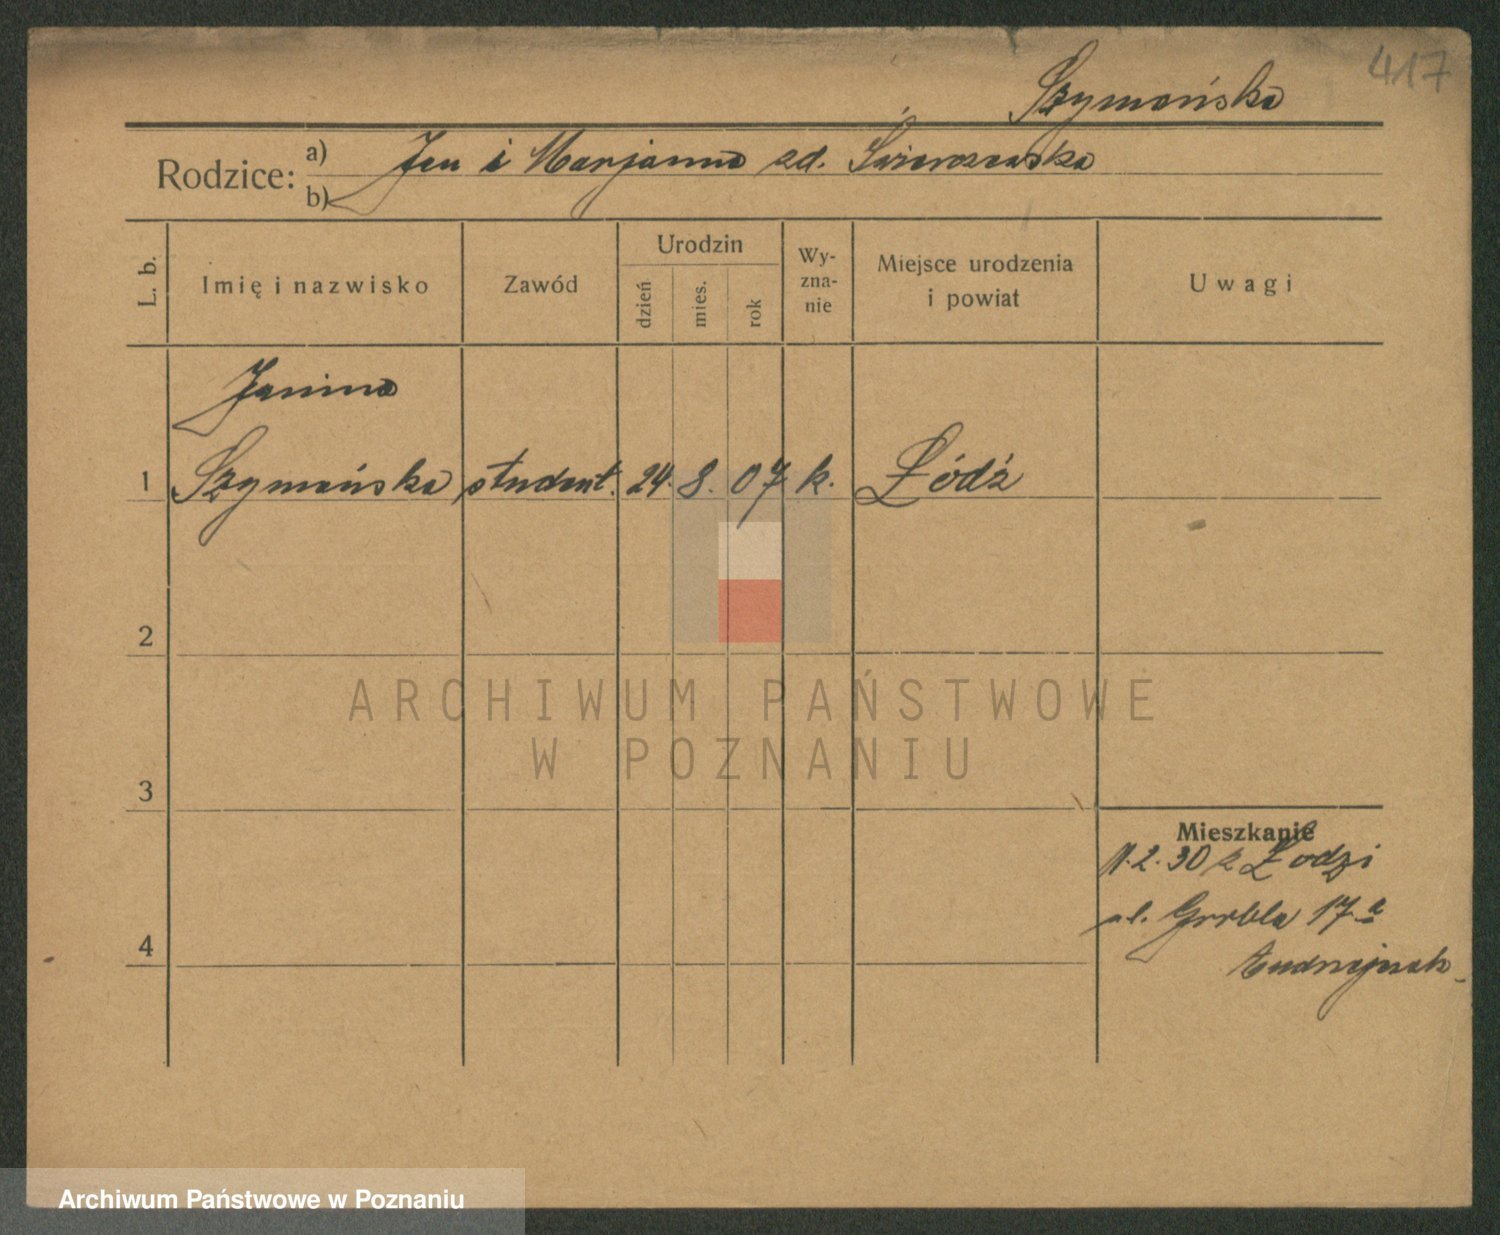 417
Szymańska
Rodzice: a) Jan i Marjanna zd. Świerczewska
b)
L. b.
Imię i nazwisko
Zawód
Urodzin
dzień
mies.
rok
Wy-
zna-
nie
Miejsce urodzenia
i powiat
Uwagi
Janina
1 Szymańska student. 24. 8. 07 k. Łódź
2
3
4
Mieszkanie
11.2.30 z Łodzi
ul. Grobla 17a
ARCHIWUM PAŃSTWOWE
W POZNANIU
Archiwum Państwowe w Poznaniu